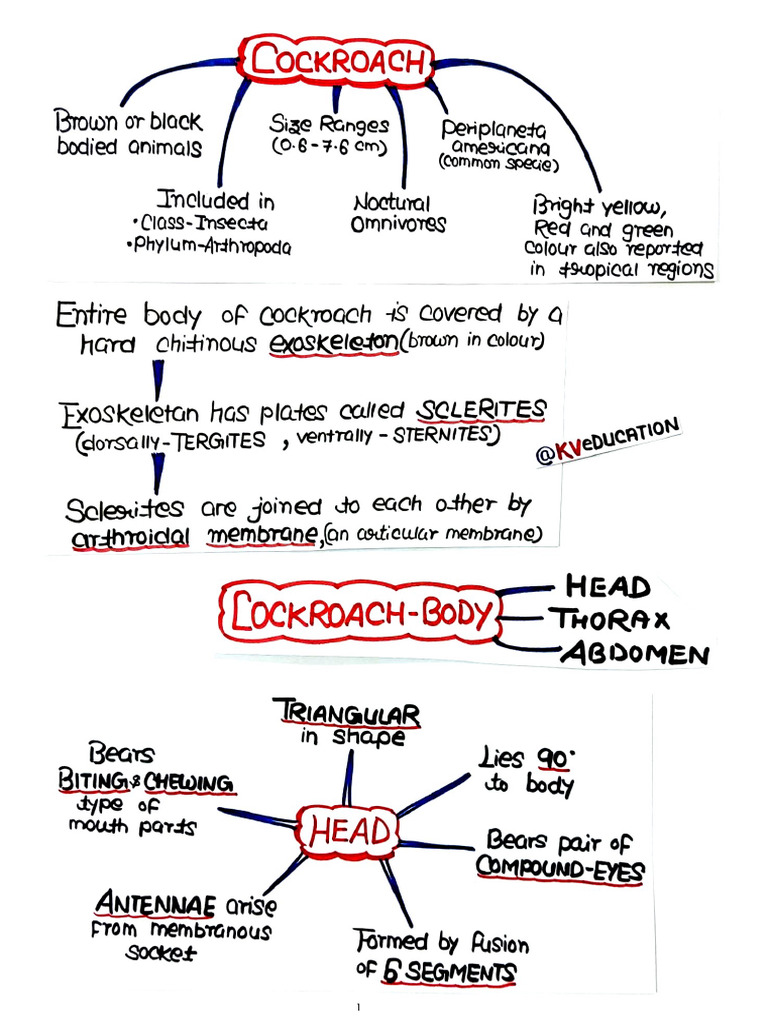 COCKROACH
Brown or black
bodied animals
Included in
•Class-Insecta
•Phylum-Arthropoda
Size Ranges
(0.6-7.6 cm)
Noctural
Omnivores
Periplaneta
americana
(common specie)
Bright yellow,
Red and green
colour also reported
in tropical regions
Entire body of cockroach is covered by a
hard chitinous exoskeleton (brown in colour)
Exoskeletan has plates called SCLERITES
(dorsally-TERGITES , ventrally-STERNITES)
@KVeDUCATION
Sclerites are joined to each other by
arthroidal membrane, (an articular membrane)
COCKROACH-BODY
HEAD
THORAX
ABDOMEN
TRIANGULAR
in shape
Bears
BITING & CHEWING
type of
mouth parts
Lies 90°
to body
HEAD
Bears pair of
COMPOUND-EYES
ANTENNAE arise
from membranous
socket
Formed by fusion
of 6 SEGMENTS
1